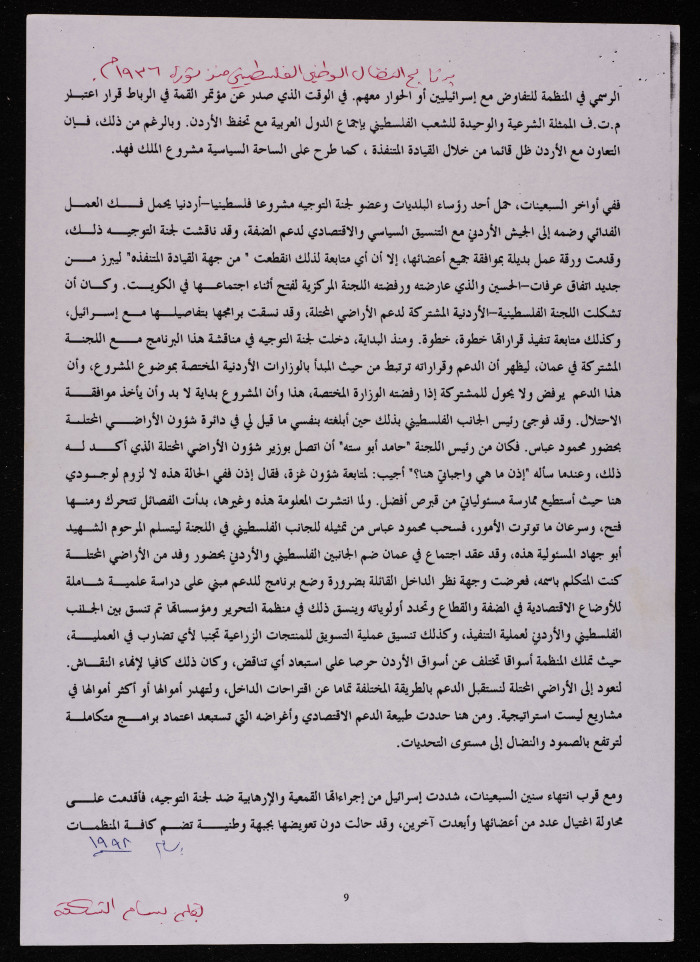 برنامج النضال الوطني الفلسطيني منذ ثورة ١٩٣٦م.
الرسمي في المنظمة للتفاوض مع إسرائيليين أو الحوار معهم. في الوقت الذي صدر عن مؤتمر القمة في الرباط قرار اعتبار
م.ت.ف الممثلة الشرعية والوحيدة للشعب الفلسطيني بإجماع الدول العربية مع تحفظ الأردن. وبالرغم من ذلك، فإن
التعاون مع الأردن ظل قائما من خلال القيادة المتنفذة ، كما طرح على الساحة السياسية مشروع الملك فهد.
ففي أواخر السبعينات، حمل أحد رؤساء البلديات وعضو لجنة التوجيه مشروعا فلسطينيا-أردنيا يحمل فك العمل
الفدائي وضمه إلى الجيش الأردني مع التنسيق السياسي والاقتصادي لدعم الضفة، وقد ناقشت لجنة التوجيه ذلك،
وقدمت ورقة عمل بديلة بموافقة جميع أعضائها، إلا أن أي متابعة لذلك انقطعت " من جهة القيادة المتنفذه" ليبرز من
جديد اتفاق عرفات-الحسين والذي عارضته ورفضته اللجنة المركزية لفتح أثناء اجتماعها في الكويت. وكان أن
تشكلت اللجنة الفلسطينية-الأردنية المشتركة لدعم الأراضي المحتلة، وقد نسقت برامجها بتفاصيلها مع إسرائيل،
وكذلك متابعة تنفيذ قراراتها خطوة، خطوة. ومنذ البداية، دخلت لجنة التوجيه في مناقشة هذا البرنامج مع اللجنة
المشتركة في عمان، ليظهر أن الدعم وقراراته ترتبط من حيث المبدأ بالوزارات الأردنية المختصة بموضوع المشروع، وأن
هذا الدعم يرفض ولا يحول للمشتركة إذا رفضته الوزارة المختصة، هذا وأن المشروع بداية لا بد وأن يأخذ موافقة
الاحتلال. وقد فوجئ رئيس الجانب الفلسطيني بذلك حين أبلغته بنفسي ما قيل لي في دائرة شؤون الأراضي المحتلة
بحضور محمود عباس. فكان من رئيس اللجنة "حامد أبو سته" أن اتصل بوزير شؤون الأراضي المحتلة الذي أكد له
ذلك، وعندما سأله "إذن ما هي واجباتي هنا؟" أجيب: لمتابعة شؤون غزة، فقال إذن ففي الحالة هذه لا لزوم لوجودي
هنا حيث أستطيع ممارسة مسئولياتي من قبرص أفضل. ولما انتشرت المعلومة هذه وغيرها، بدأت الفصائل تتحرك ومنها
فتح، وسرعان ما توترت الأمور، فسحب محمود عباس من تمثيله للجانب الفلسطيني في اللجنة ليتسلم المرحوم الشهيد
أبو جهاد المسئولية هذه، وقد عقد اجتماع في عمان ضم الجانبين الفلسطيني والأردني بحضور وفد من الأراضي المحتلة
كنت المتكلم باسمه، فعرضت وجهة نظر الداخل القائلة بضرورة وضع برنامج للدعم مبني على دراسة علمية شاملة
للأوضاع الاقتصادية في الضفة والقطاع وتحدد أولوياته وينسق ذلك في منظمة التحرير ومؤسساتها ثم تنسق بين الجانب
الفلسطيني والأردني لعملية التنفيذ، وكذلك تنسيق عملية التسويق للمنتجات الزراعية تجنبا لأي تضارب في العملية،
حيث تملك المنظمة أسواقا تختلف عن أسواق الأردن حرصا على استبعاد أي تناقض، وكان ذلك كافيا لإنهاء النقاش.
لنعود إلى الأراضي المحتلة لنستقبل الدعم بالطريقة المختلفة تماما عن اقتراحات الداخل، ولتهدر أموالها أو أكثر أموالها في
مشاريع ليست استراتيجية. ومن هنا حددت طبيعة الدعم الاقتصادي وأغراضه التي تستبعد اعتماد برامج متكاملة
لترتفع بالصمود والنضال إلى مستوى التحديات.
ومع قرب انتهاء سنين السبعينات، شددت إسرائيل من إجراءاتها القمعية والإرهابية ضد لجنة التوجيه، فأقدمت على
محاولة اغتيال عدد من أعضائها وأبعدت آخرين، وقد حالت دون تعويضها بجبهة وطنية تضم كافة المنظمات
١٩٩٨
9
بقلم بسام الشكعة